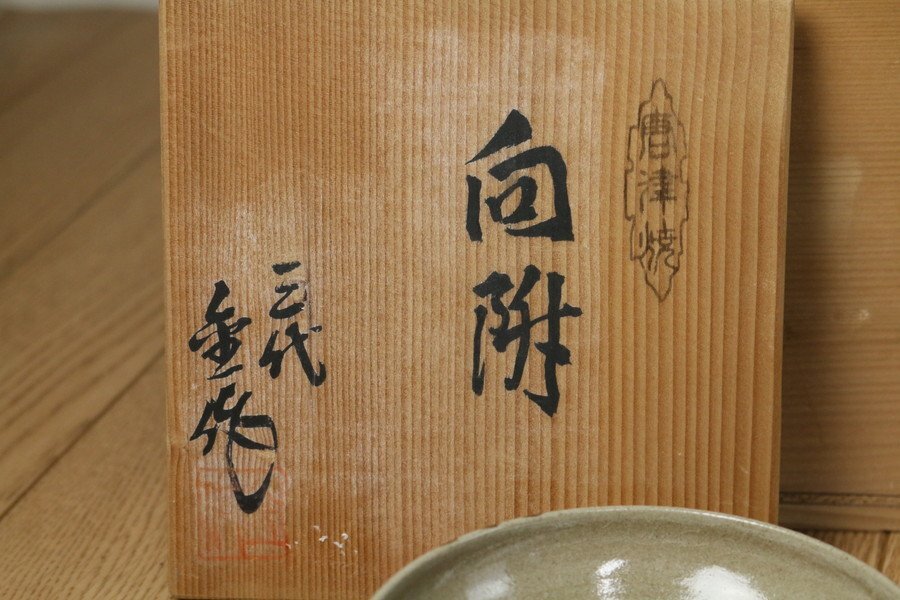 唐津焼
向附
三代
金作